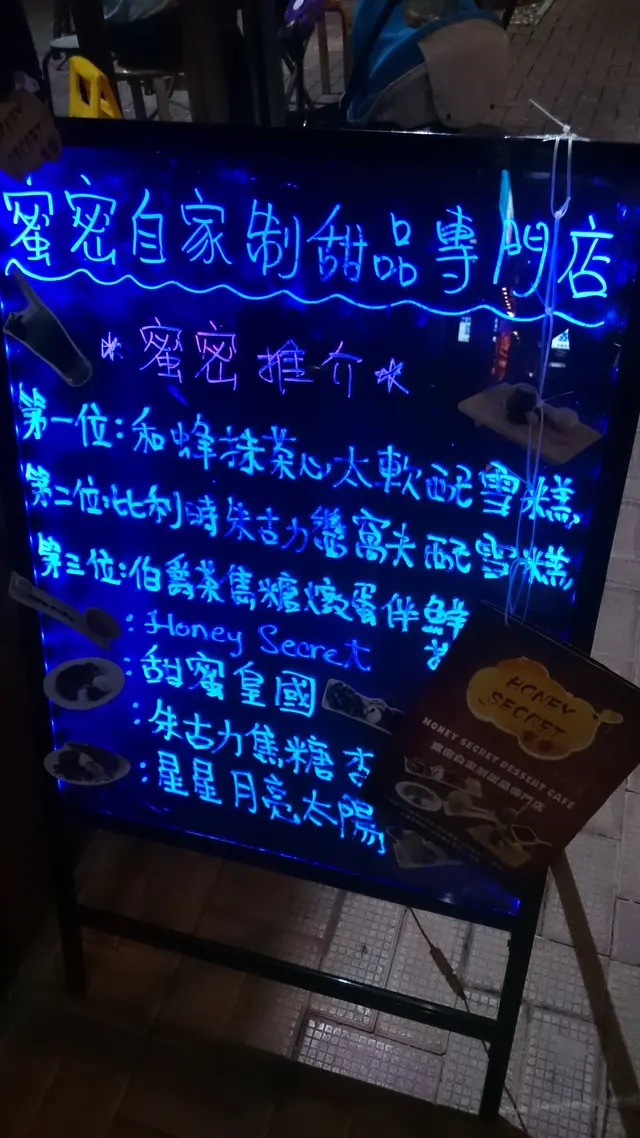 蜜密自家制甜品專門店
*蜜密推介*
第一位:和蜂抹茶心太軟配雪糕
第二位:比利時朱古力醬窩夫配雪糕
第三位:伯爵茶焦糖燉蛋伴鮮
:Honey Secret
:甜蜜皇國
:朱古力焦糖
:星星月亮太陽
HONEY
SECRET
蜜密
HONEY SECRET DESSERT CAFE
蜜密自家制甜品專門店